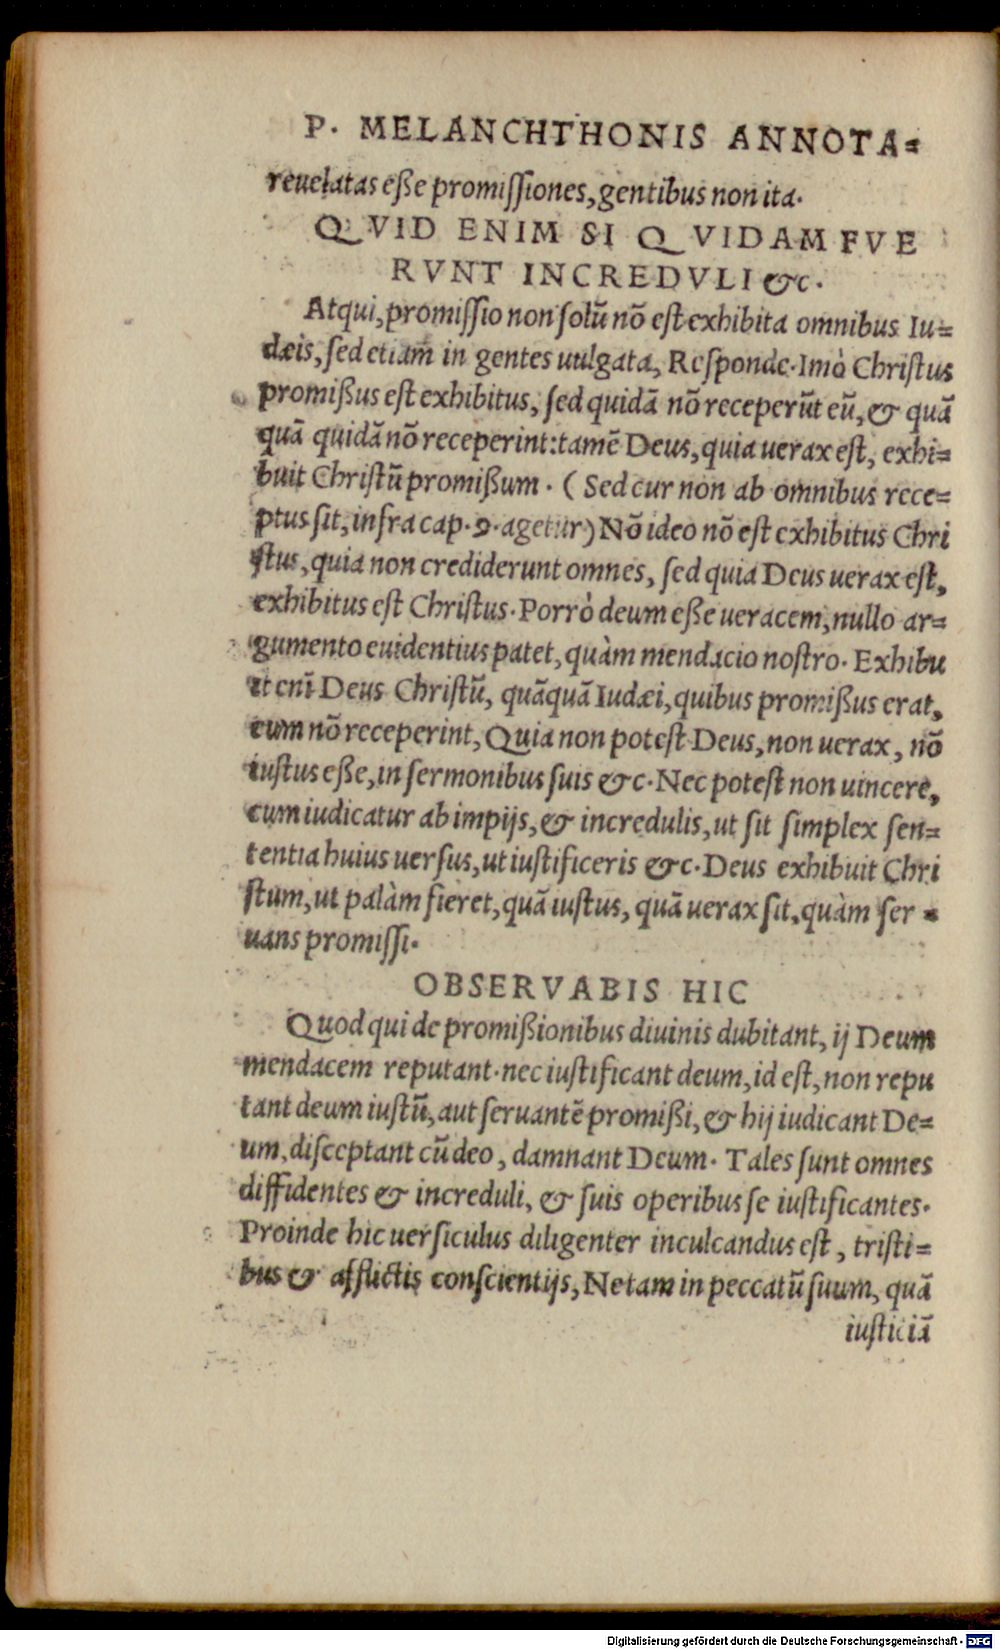 P. MELANCHTHONIS ANNOTA=
reuelatas eße promiſſiones, gentibus non ita.
QVID ENIM SI QVIDAM FVE
RVNT INCREDVLI &c.
Atqui, promiſſio non ſolũ nõ eſt exhibita omnibus Iu=
dæis, ſed etiam in gentes uulgata, Reſponde. Imò Chriſtus
promißus eſt exhibitus, ſed quidã nõ receperũt eũ, & quã
quã quidã nõ receperint: tamẽ Deus, quia uerax eſt, exhi=
buit Chriſtũ promißum. (Sed cur non ab omnibus rece=
ptus ſit, infra cap. 9. agetur) Nõ ideo nõ eſt exhibitus Chri
ſtus, quia non crediderunt omnes, ſed quia Deus uerax eſt,
exhibitus eſt Chriſtus. Porrò deum eße ueracem, nullo ar=
gumento euidentius patet, quàm mendacio noſtro. Exhibu
it enĩ Deus Chriſtũ, quãquã Iudæi, quibus promißus erat,
eum nõ receperint, Quia non poteſt Deus, non uerax, nõ
iuſtus eße, in ſermonibus ſuis &c. Nec poteſt non uincere,
cum iudicatur ab impijs, & incredulis, ut ſit ſimplex ſen=
tentia huius uerſus, ut iuſtificeris &c. Deus exhibuit Chri
ſtum, ut palàm fieret, quã iuſtus, quã uerax ſit, quàm ſer=
uans promiſſi.
OBSERVABIS HIC
Quod qui de promißionibus diuinis dubitant, ij Deum
mendacem reputant. nec iuſtificant deum, id eſt, non repu
tant deum iuſtũ, aut ſeruantẽ promißi, & hij iudicant De=
um, diſceptant cũ deo, damnant Deum. Tales ſunt omnes
diffidentes & increduli, & ſuis operibus ſe iuſtificantes.
Proinde hic uerſiculus diligenter inculcandus eſt, triſti=
bus & afflictis conſcientijs, Ne tam in peccatũ ſuum, quã
iuſticiã
Digitalisierung gefördert durch die Deutsche Forschungsgemeinschaft - DFG